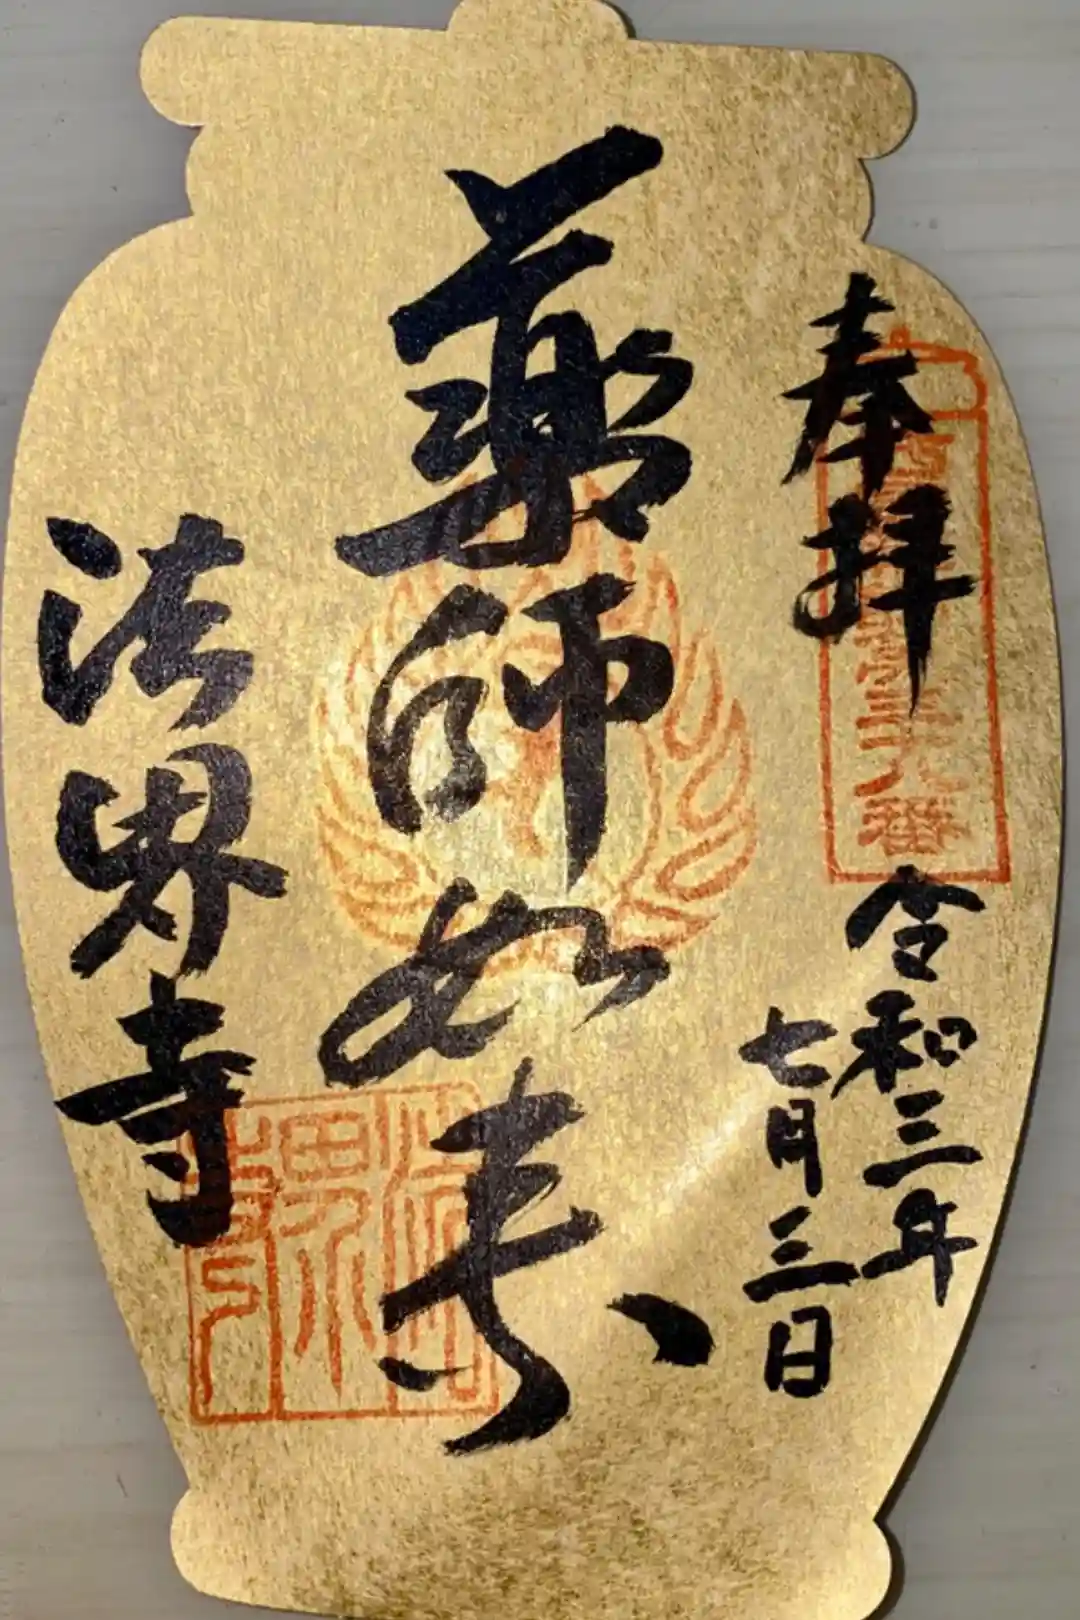 奉拝
令和三年
七月三日
薬師如来
法界寺